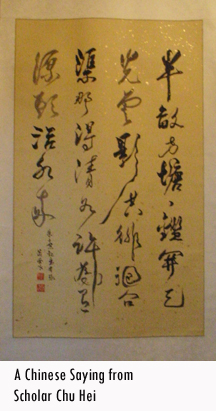 半畝方塘一鑑開天
光雲影共徘徊問
渠那得清如許為有
源頭活水來
A Chinese Saying from
Scholar Chu Hei